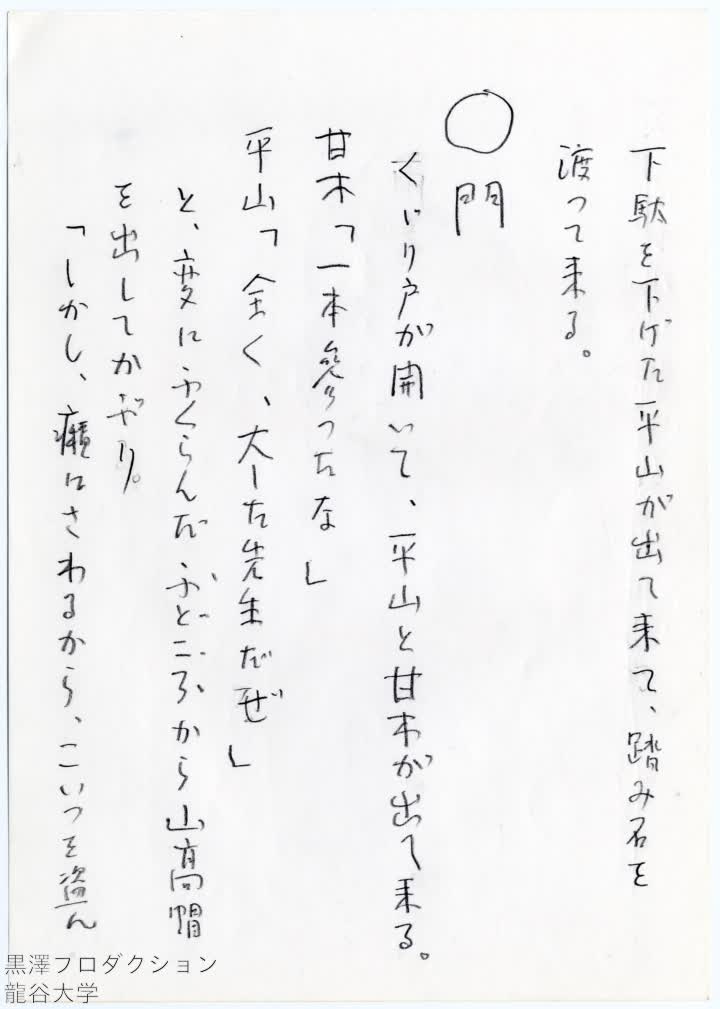 下駄を下げた平山が出て来て、踏み石を
渡って来る。
◯門
くゞり戸が開いて、平山と甘木が出て来る。
甘木「一本参ったな」
平山「全く、大した先生だぜ」
と、変にふくらんだふどころから山高帽
を出してかぶり。
「しかし、癪にさわるから、こいつを盗ん
黒澤プロダクション
龍谷大学